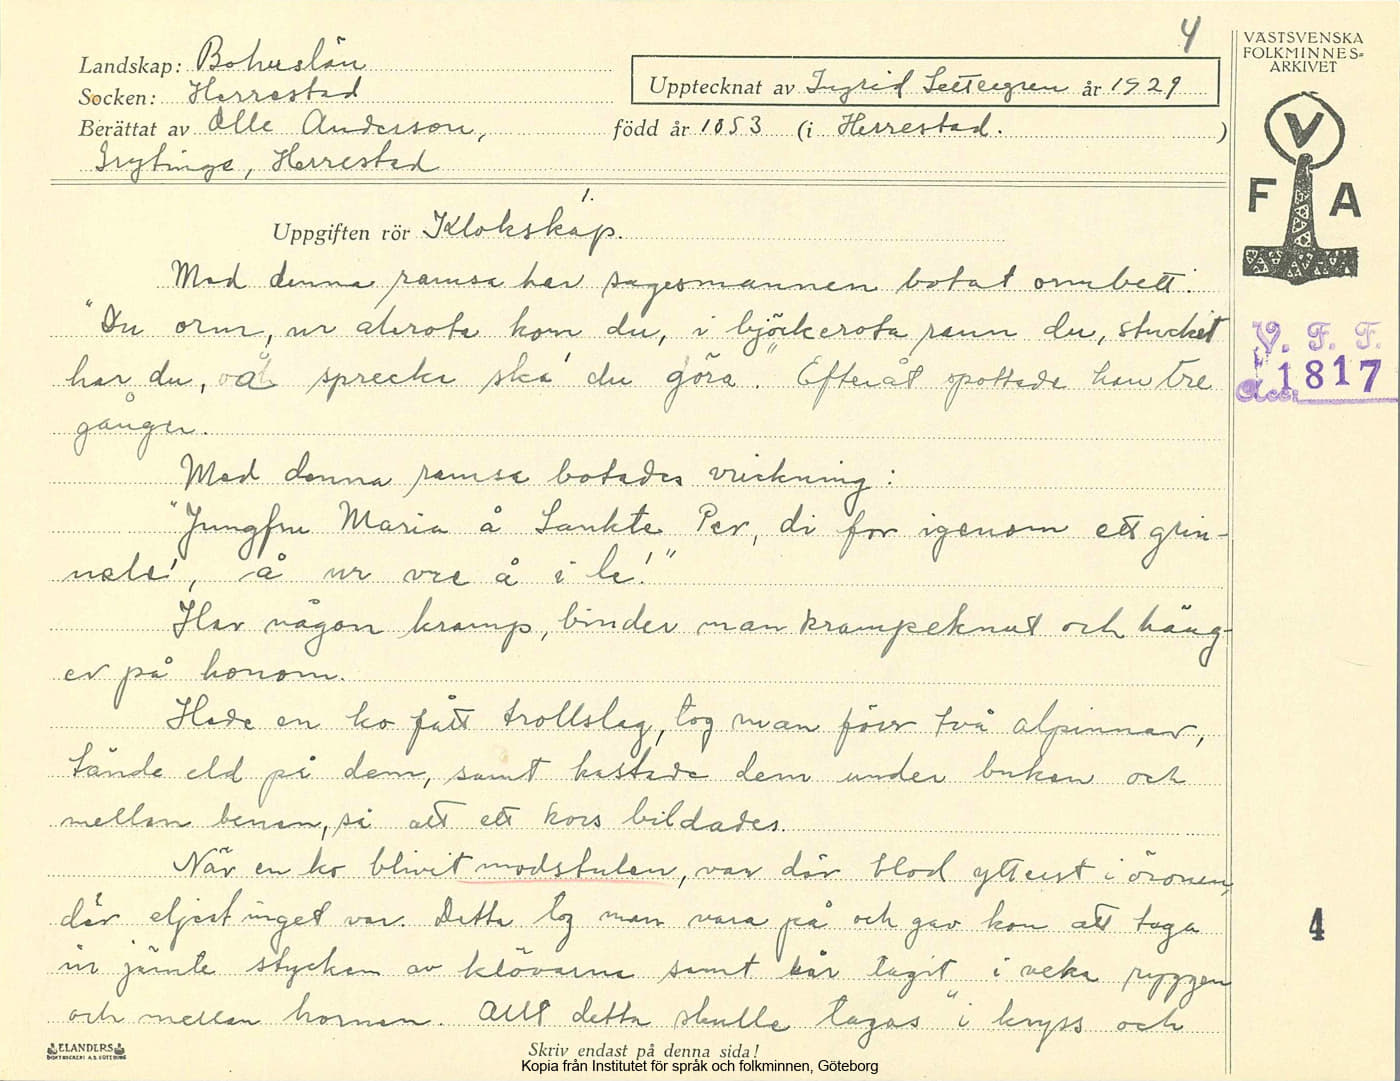 4
Landskap: Bohuslän
Socken: Herrestad
Upptecknat av Ingrid Settergren år 1929
Berättat av Olle Anderson, född år 1853 (i Herrestad. )
Grytinge, Herrestad
VÄSTSVENSKA
FOLKMINNES=
ARKIVET
V
F A
1.
Uppgiften rör Klokskap.
Med denna ramsa har sagesmannen botat ormbett:
"Du orm, ur alerota kom du, i björkerota rann du, stucket
har du, å sprecka ska du göra". Efteråt spottade han tre
gånger.
V. F. F.
Acc: 1817
Med denna ramsa botades vrickning:
"Jungfru Maria å Sankte Per, di for igenom ett grin-
nele', å ur vre å i le'!"
Har någon kramp, binder man krampeknut och häng-
er på honom.
Hade en ko fått trollslag, tog man förr två alpinnar,
tände eld på dem, samt kastade dem under buken och
mellan benen, så att ett kors bildades.
När en ko blivit modstulen, var där blod ytterst i öronen,
där eljest inget var. Detta tog man vara på och gav kon att taga
in jämte stycken av klövarna samt hår tagit i veka ryggen
och mellan hornen. Allt detta skulle tagas "i kryss och
4
ELANDERS
BOKTRYCKERI A.B. GÖTEBORG
Skriv endast på denna sida!
Kopia från Institutet för språk och folkminnen, Göteborg